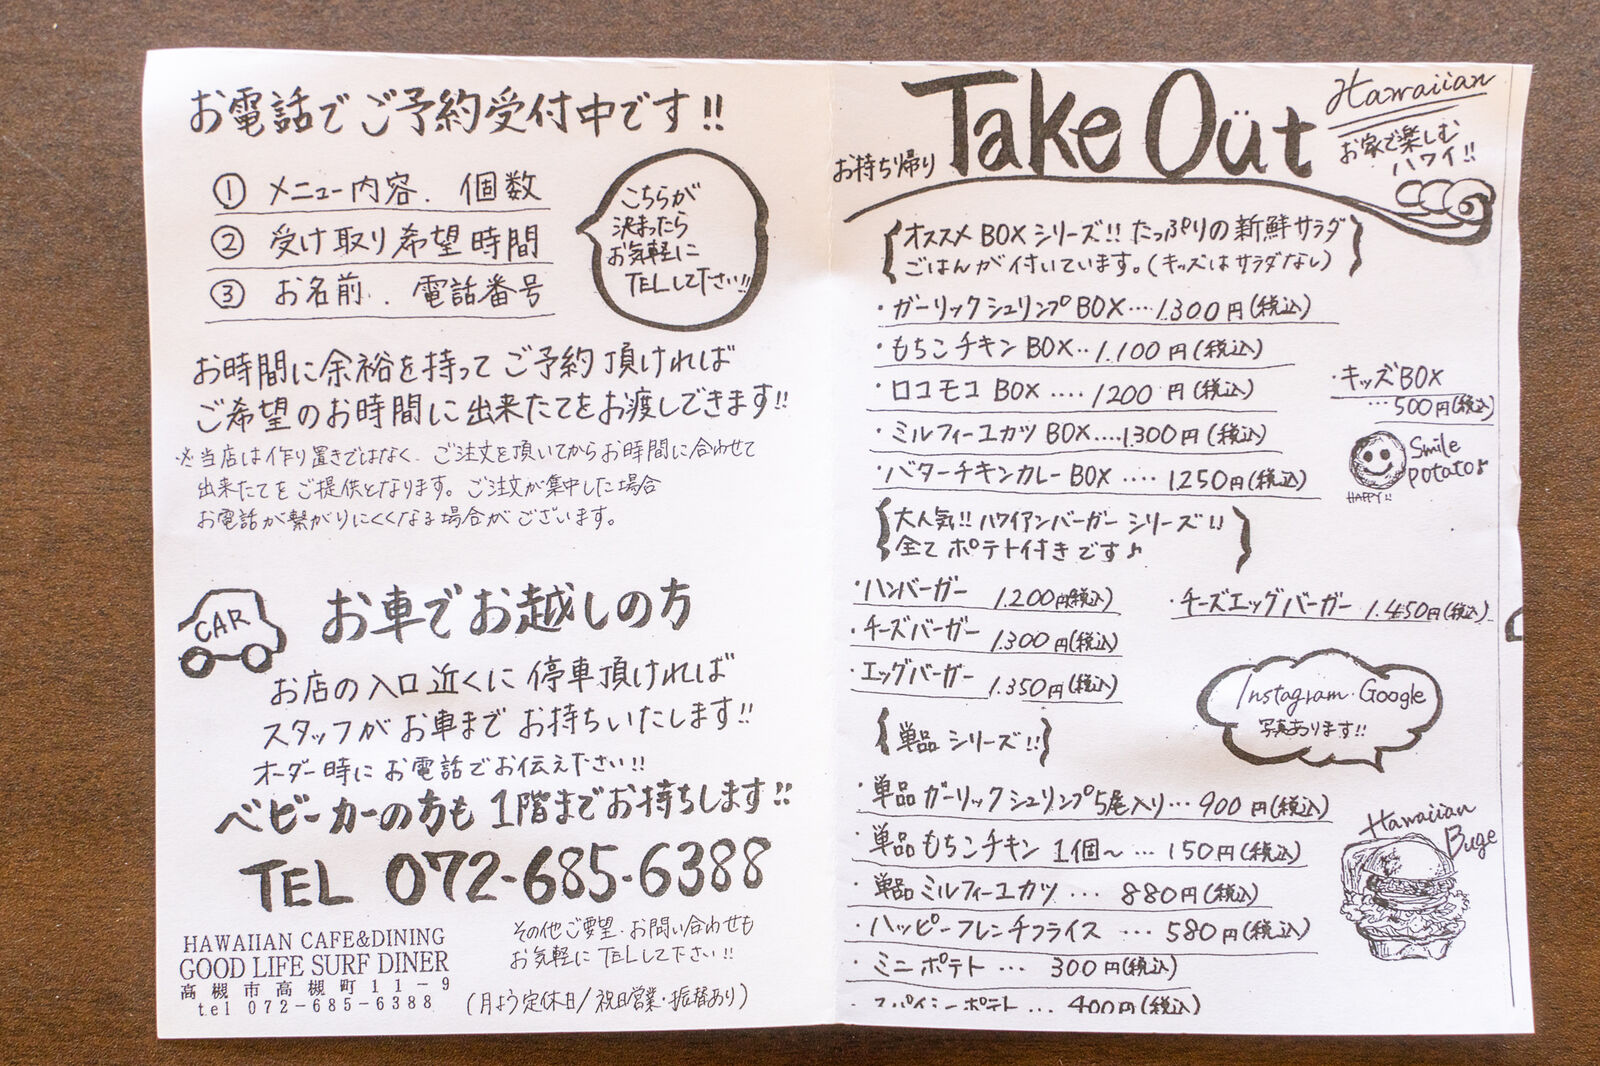 お電話でご予約受付中です!!
① メニュー内容．個数
② 受け取り希望時間
③ お名前．．電話番号
こちらが
決まったら
お気軽に
TELして下さい!!
お時間に余裕を持ってご予約頂ければ
ご希望のお時間に出来たてをお渡しできます!!
※当店は作り置きではなく．ご注文を頂いてからお時間に合わせて
出来たてをご提供となります。ご注文が集中した場合
お電話が繋がりにくくなる場合がございます。
CAR
お車でお越しの方
お店の入口近くに停車頂ければ
スタッフがお車までお持ちいたします!!
オーダー時にお電話でお伝え下さい!!
ベビーカーの方も1階までお持ちします!!
TEL 072-685-6388
HAWAIIAN CAFE&DINING
GOOD LIFE SURF DINER
高槻市高槻町11-9
tel 072-685-6388
その他ご要望．お問い合わせも
お気軽にTELして下さい!!
(月よう定休日/祝日営業・振替あり)
お持ち帰り Take Out
Hawaiian
お家で楽しむ
ハワイ!!
{オススメBOXシリーズ!! たっぷりの新鮮サラダ
ごはんが付いています。(キッズはサラダなし)}
・ガーリックシュリンプBOX····1.300円(税込)
・もちこチキンBOX··1.100円(税込)
・ロコモコBOX····1200円(税込)
・ミルフィーユカツBOX....1300円(税込)
・バターチキンカレーBOX ····1250円(税込)
・キッズBOX
···500円(税込)
Smile
potato♪
HAPPY!!
{大人気!! ハワイアンバーガーシリーズ!!
全てポテト付きです♪}
・ハンバーガー 1.200円(税込)
・チーズバーガー 1.300円(税込)
・エッグバーガー 1.350円(税込)
・チーズエッグバーガー 1.450円(税込)
Instagram・Google
写真あります!!
{単品シリーズ!!}
・単品ガーリックシュリンプ5尾入り···900円(税込)
・単品もちこチキン 1個～···150円(税込)
・単品ミルフィーユカツ ···880円(税込)
・ハッピーフレンチフライス ···580円(税込)
・ミニポテト···300円(税込)
・スパイシーポテト···400円(税込)
Hawaiian
Buge